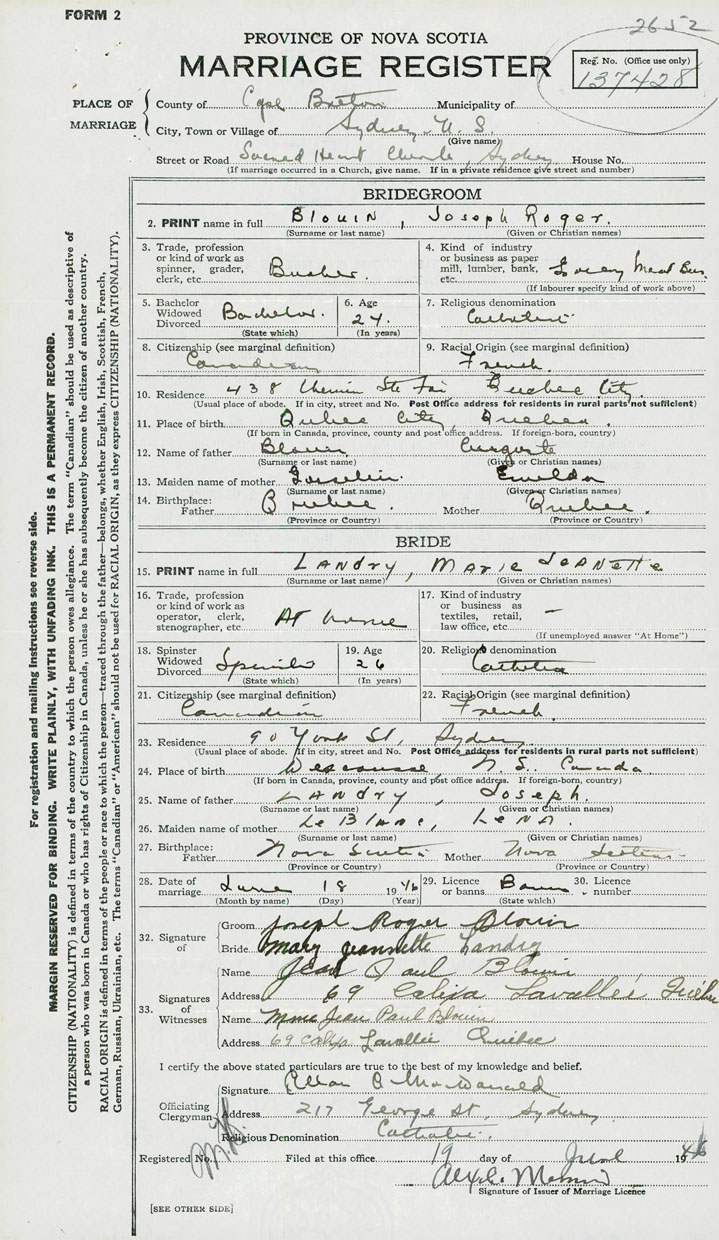 FORM 2
2652
PROVINCE OF NOVA SCOTIA
MARRIAGE REGISTER
Reg. No. (Office use only)
137428
PLACE OF MARRIAGE
County of Cape Breton Municipality of
City, Town or Village of Sydney N. S.
(Give name)
Street or Road Sacred Heart Church, Sydney House No.
(If marriage occurred in a Church, give name. If in a private residence give street and number)
BRIDEGROOM
2. PRINT name in full BLOUIN, JOSEPH ROGER.
(Surname or last name) (Given or Christian names)
3. Trade, profession or kind of work as spinner, grader, clerk, etc.
4. Kind of industry or business as paper mill, lumber, bank, etc. Meat Bus.
(If labourer specify kind of work above)
5. Bachelor Widowed Divorced Bachelor.
(State which)
6. Age 24.
(In years)
7. Religious denomination Catholic
8. Citizenship (see marginal definition) Canadian
9. Racial Origin (see marginal definition) French.
10. Residence 438 Chemin Ste Foi Quebec City.
(Usual place of abode. If in city, street and No. Post Office address for residents in rural parts not sufficient)
11. Place of birth Quebec City, Quebec.
(If born in Canada, province, county and post office address. If foreign-born, country)
12. Name of father Blouin
(Surname or last name) (Given or Christian names)
13. Maiden name of mother Gosselin
(Surname or last name) (Given or Christian names)
14. Birthplace: Father Quebec. Mother Quebec.
(Province or Country) (Province or Country)
BRIDE
15. PRINT name in full LANDRY, MARIE JEANETTE
(Surname or last name) (Given or Christian names)
16. Trade, profession or kind of work as operator, clerk, stenographer, etc. At home
17. Kind of industry or business as textiles, retail, law office, etc. —
(If unemployed answer "At Home")
18. Spinster Widowed Divorced Spinster
(State which)
19. Age 26
(In years)
20. Religious denomination Catholic
21. Citizenship (see marginal definition) Canadian
22. Racial Origin (see marginal definition) French.
23. Residence 90 York St, Sydney
(Usual place of abode. If in city, street and No. Post Office address for residents in rural parts not sufficient)
24. Place of birth Descousse, N. S. Canada
(If born in Canada, province, county and post office address. If foreign-born, country)
25. Name of father LANDRY, Joseph.
(Surname or last name) (Given or Christian names)
26. Maiden name of mother LeBlanc, LENA.
(Surname or last name) (Given or Christian names)
27. Birthplace: Father Nova Scotia Mother Nova Scotia
(Province or Country) (Province or Country)
28. Date of marriage June 18 1946
(Month by name) (Day) (Year)
29. Licence or banns Banns
(State which)
30. Licence number
32. Signature of
Groom Joseph Roger Blouin
Bride Mary Jeannette Landry
33. Signatures of Witnesses
Name Jean Paul Blouin
Address 69 Calixa Lavallée Québec
Name Mme Jean Paul Blouin
Address 69 Calixa Lavallée Québec
I certify the above stated particulars are true to the best of my knowledge and belief.
Officiating Clergyman
Signature MacDonald
Address 217 George St, Sydney
Religious Denomination Catholic.
Registered No. Filed at this office 19 day of June 1946
Signature of Issuer of Marriage Licence
[SEE OTHER SIDE]
For registration and mailing instructions see reverse side.
MARGIN RESERVED FOR BINDING. WRITE PLAINLY, WITH UNFADING INK. THIS IS A PERMANENT RECORD.
CITIZENSHIP (NATIONALITY) is defined in terms of the country to which the person owes allegiance. The term "Canadian" should be used as descriptive of
a person who was born in Canada or who has rights of Citizenship in Canada, unless he or she has subsequently become the citizen of another country.
RACIAL ORIGIN is defined in terms of the people or race to which the person—traced through the father—belongs, whether English, Irish, Scottish, French,
German, Russian, Ukrainian, etc. The terms "Canadian" or "American" should not be used for RACIAL ORIGIN, as they express CITIZENSHIP (NATIONALITY).